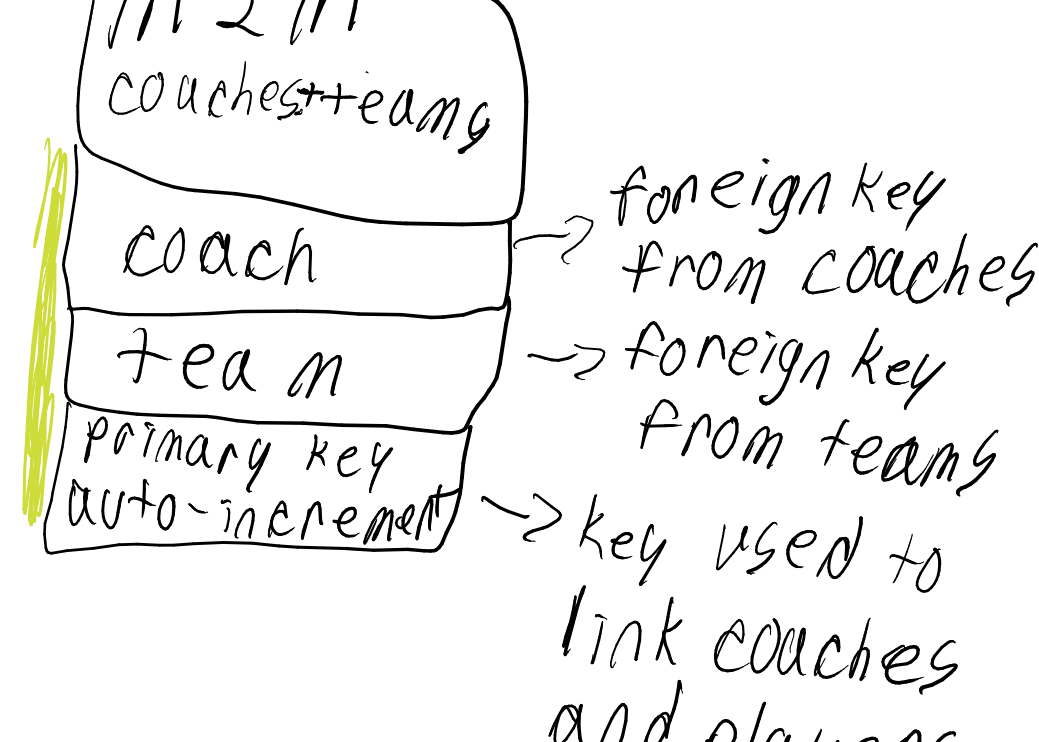 M2M
coaches++teams
coach
team
primary key
auto-increment
foreign key
from coaches
foreign key
from teams
key used to
link coaches
and players